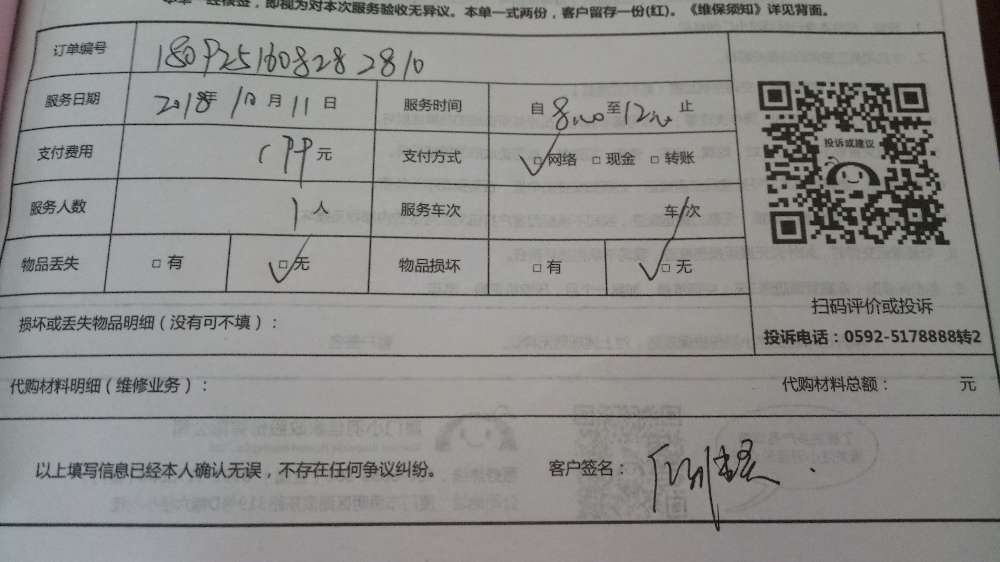 本单一经接签，即视为对本次服务验收无异议。本单一式两份，客户留存一份(红)。《维保须知》详见背面。
订单编号 180925160828 2810
服务日期 2018年 10月 11日 服务时间 自 8:00 至 12:00 止
支付费用 199元 支付方式 □网络 □现金 □转账
服务人数 1人 服务车次 车/次
物品丢失 □有 □无 物品损坏 □有 □无
投诉或建议
扫码评价或投诉
投诉电话：0592-5178888转2
损坏或丢失物品明细（没有可不填）：
代购材料明细（维修业务）： 代购材料总额： 元
以上填写信息已经本人确认无误，不存在任何争议纠纷。 客户签名：